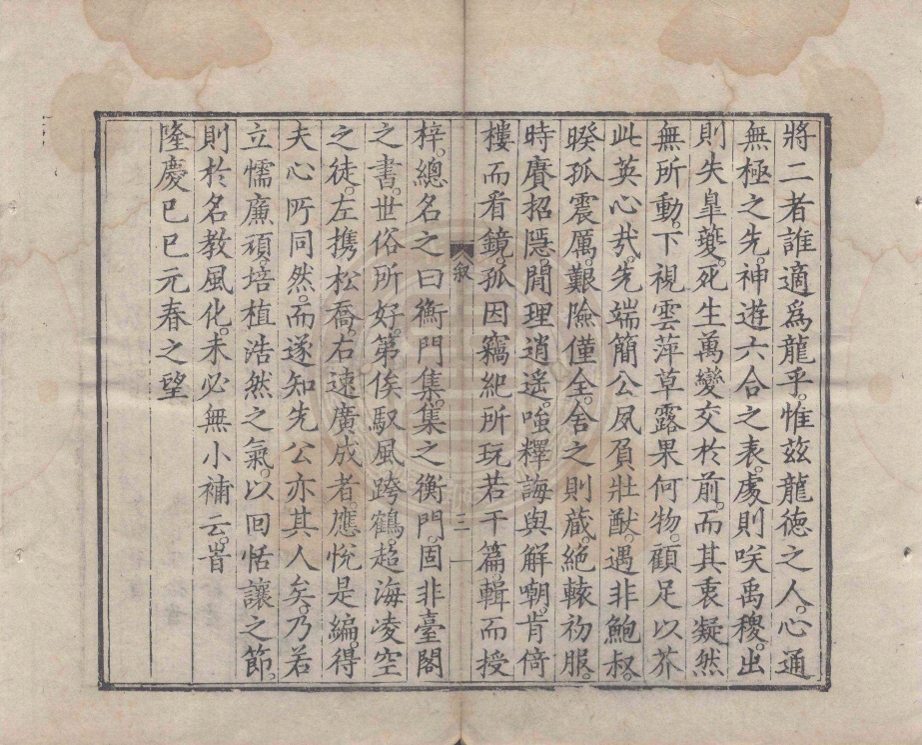 將二者誰適爲龍乎。惟茲龍德之人。心通
無極之先。神遊六合之表。處則咲禹稷。出
則失臯夔。死生萬變交於前。而其衷凝然
無所動。下視雲萍草露果何物。顧足以芥
此英心㢤。先端簡公夙負壯猷。遇非鮑叔。
暌孤震厲。艱險僅全。舍之則藏。絶轅初服。
時賡招隱。閒理逍遥。唫釋誨與解嘲。肯倚
樓而看鏡。孤因竊紀所玩若干篇。輯而授
叙
二
梓。總名之曰衡門集。集之衡門。固非臺閣
之書。世俗所好。第俟馭風跨鶴超海凌空
之徒。左携松喬。右速廣成者。應悅是編。得
夫心所同然。而遂知先公亦其人矣。乃若
立懦廉頑。培植浩然之氣。以回恬讓之節。
則於名教風化。未必無小補云。旹
隆慶已巳元春之望